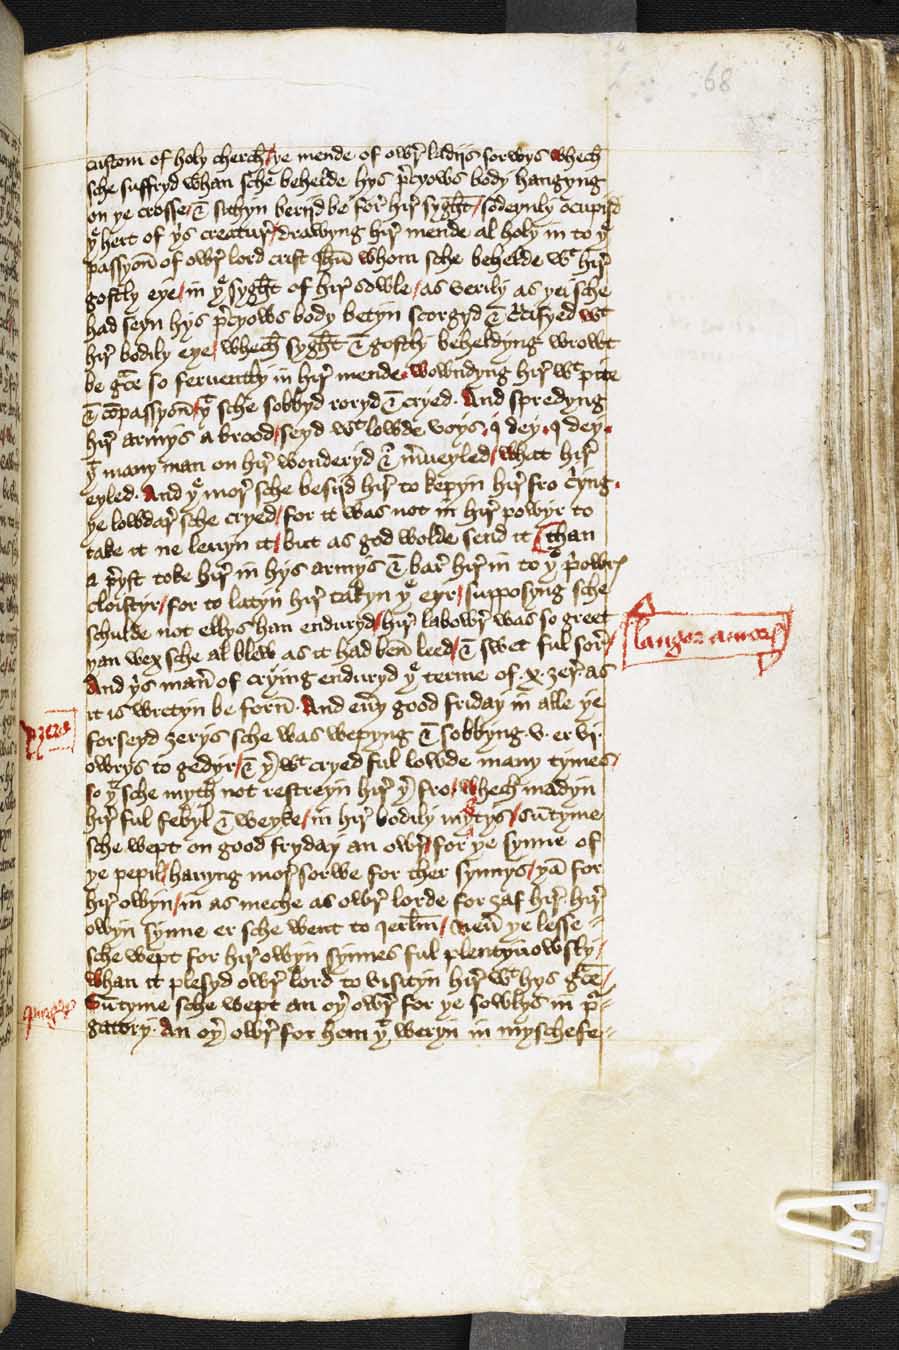 68
custom of holy cherch / ye mende of owr̛ ladijs sorwys whech
sche suffryd whan sche behelde hys p̛cyows body hangyng
on ye crosse / & sithyn berijd be for̛ hir̛ syght / sodeynly ocupijd
yᵉ hert of yis creatur̛ / drawyng hir̛ mende al holy in to yᵉ
passyon̄ of owr̛ lord crist ihū whom sche behelde wᵗ hir̛
gostly eye / in yᵉ syght of hir̛ sowle / as verily as yei sche
had seyn hys p̛cyows body betyn scorgyd & c̛cifyed wᵗ
hir̛ bodily eye / whech syght & gostly beheldyng wrowt
be gr̄ce so feruently in hir̛ mende / wowndyng hir̛ wᵗ pite
& cōpassyon̄ / yᵗ sche sobbyd roryd & cryed . And spredyng
hir̛ armys a brood / seyd wᵗ lowde voys . I dey . I dey .
yᵗ many man on hir̛ wonderyd & m̛ueyled / what hir̛
eyled . And yᵉ mor̛ sche besijd hir̛ to kepyn hir̛ fro c̛ying .
ye lowdar̛ sche cryed / for it was not in hir̛ powyr to
take it ne leuyn it / but as god wolde send it / than
a p̛yst toke hir̛ in hys armys & bar̛ hir̛ in to yᵉ p̛owrs
cloistyr / for to latyn hir̛ takyn yᵉ eyr / supposyng sche
schulde not ellys han enduryd / hir̛ labowr̛ was so greet
yan wex sche al blew as it had ben̄ leed / & swet ful sor̛ /
langor amoris
And yis man̛ of crying enduryd yᵉ terme of . x . ȝer̛ . as
it is wretyn be forn̄ . And eưy good friday in alle ye
x ȝers
forseyd ȝerys sche was wepyng & sobbyng . v . er vi .
owrys to gedyr / & y̛ wᵗ cryed ful lowde many tymes /
so yᵗ sche myth not restreyn hir̛ y̛ fro / whech madyn
hir̛ ful febyl & weyke / in hir̛ bodily mytys / sūtyme
sche wept on good fryday an owr̛ / for ye synne of
ye pepil / hauyng mor̛ sorwe for ther synnys / yā for
hir̛ owyn / in as meche as owr̛ lorde for ȝaf hir̛ . hir̛
owyn synne er sche went to Ierl̄m / neư ye lesse
sche wept for hir̛ owyn synnes ful plentyuowsly /
whan it plesyd owr̛ lord to visityn hir̛ wᵗ hys gr̄ce /
Sūtyme sche wept an oy̛ owr̛ for ye sowlys in p̛-
gatory . An oy̛ owr̛ for hem yᵗ weryn in myschefe